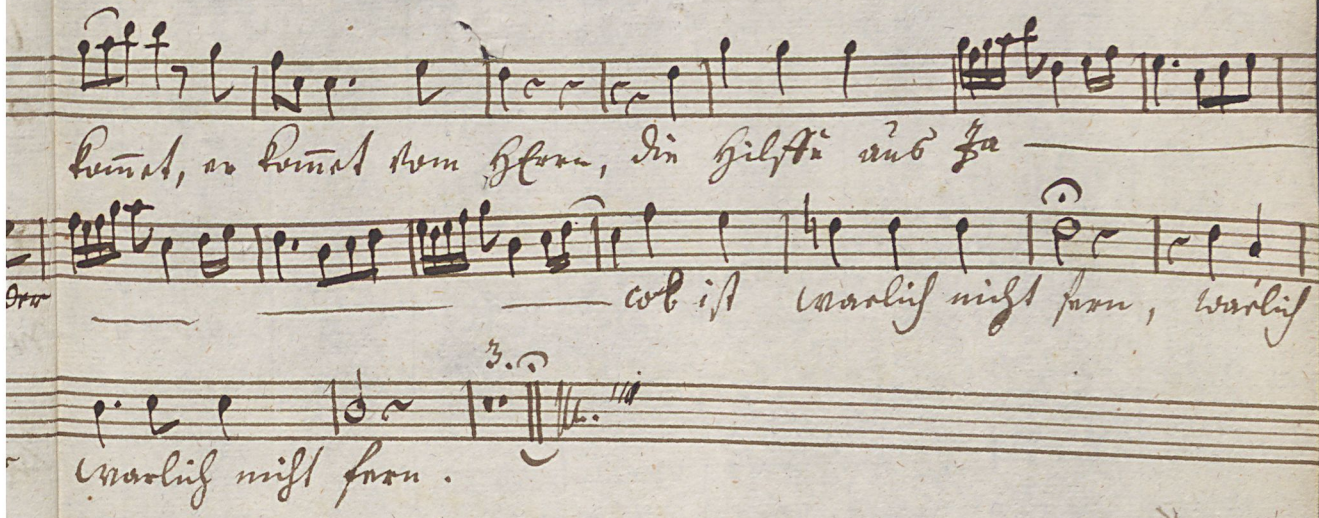 kom̄et, er kom̄et vom HErrn, die Hilffe aus Ja
der cob ist warlich nicht fern, warlich
3.
warlich nicht fern.